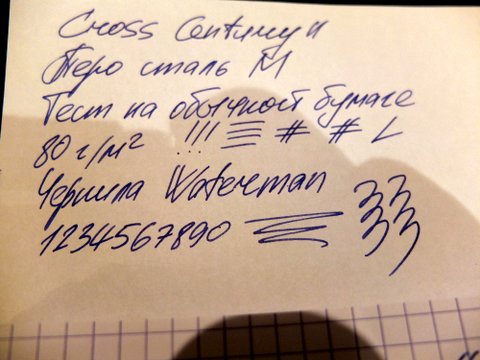 Cross Century II
Перо сталь M
Тест на обычной бумаге
80 г/м² !!! # # L
Чернила Waterman
1234567890